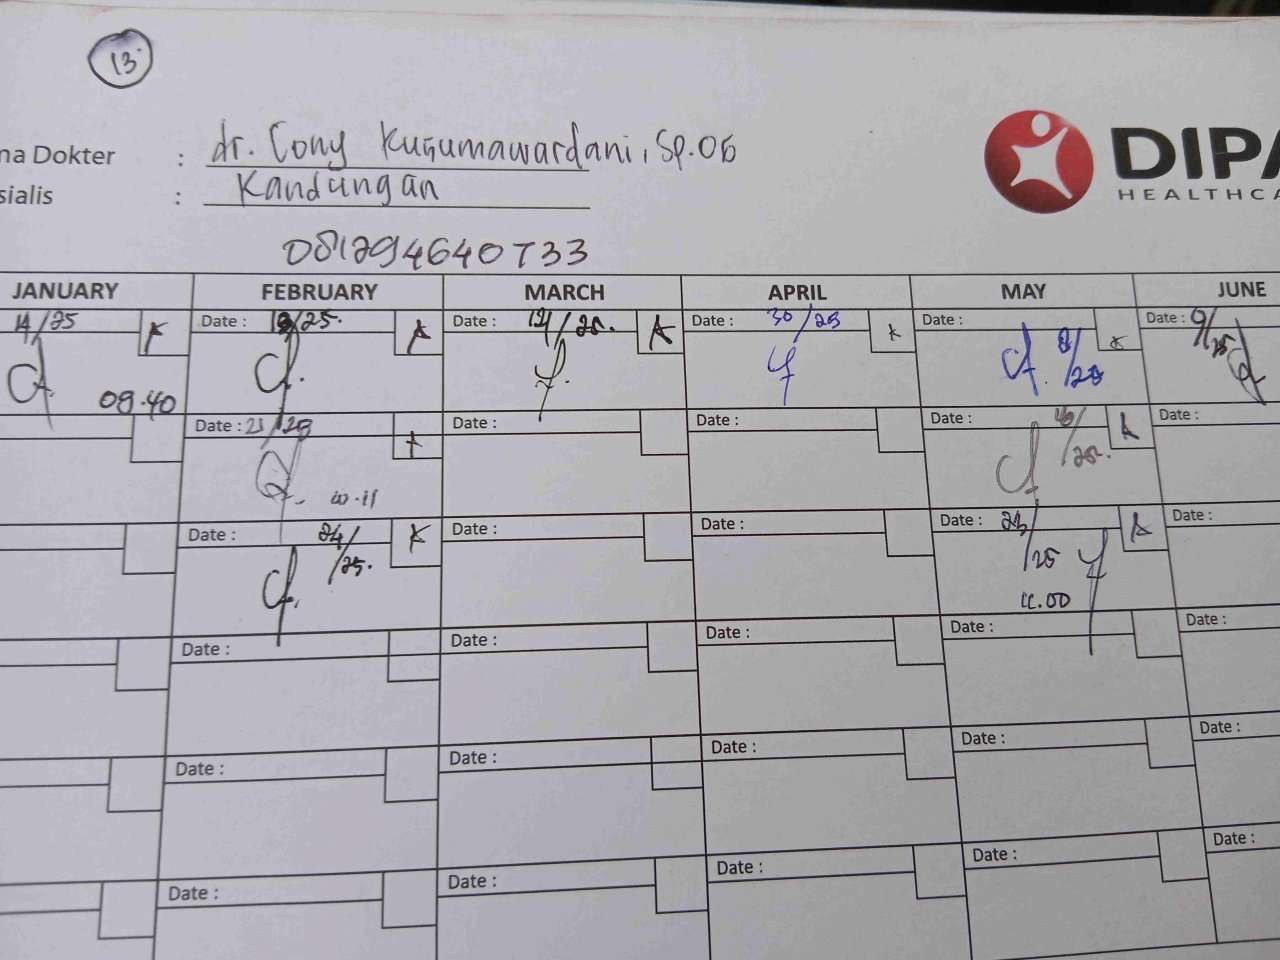 13
na Dokter : dr. Cony Kusumawardani, Sp.OG
sialis : Kandungan
DIPA
HEALTHCA
081294640733
JANUARY FEBRUARY MARCH APRIL MAY JUNE
14/25 Date : /25. Date : Date : 30/25 Date : Date : 9/25
09.40
Date : 21/ Date : Date : Date : Date :
Date : 24/25. Date : Date : Date : 23/25 Date :
11.00
Date : Date : Date : Date : Date :
Date : Date : Date : Date : Date :
Date : Date : Date : Date : Date :